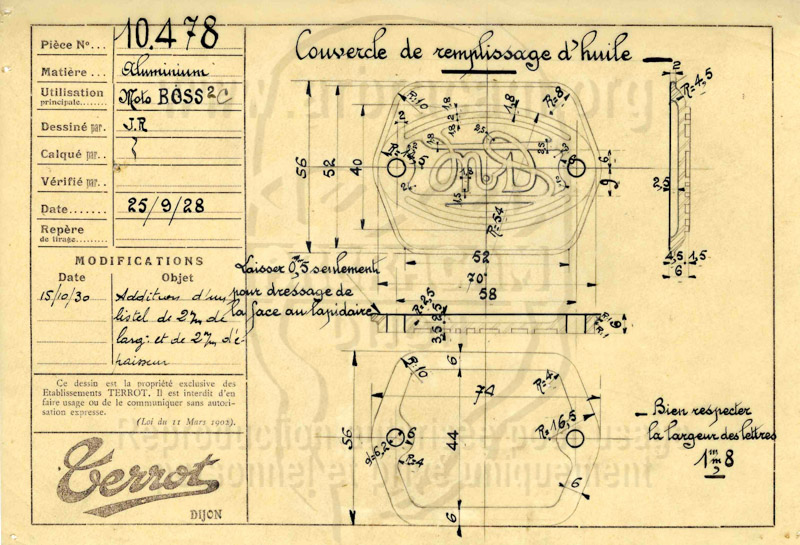 Pièce N°... 10.478
Matière... Aluminium
Utilisation principale....... Moto BOSS 2C
Dessiné par. J.R
Calqué par..
Vérifié par..
Date....... 25/9/28
Repère de tirage...
MODIFICATIONS
Date Objet
15/10/30 Addition d'un
listel de 2m/m de
larg: et de 2m/m d'é-
paisseur
Ce dessin est la propriété exclusive des
Etablissements TERROT. Il est interdit d'en
faire usage ou de le communiquer sans autori-
sation expresse.
(Loi du 11 Mars 1902).
Terrot
DIJON
Couvercle de remplissage d'huile
R=10
1,8
2
1,8
1,8
R=8
2
2,5
56
52
40
MD
6
9
1,5
R=54
52
70
58
2
R=4,5
2,5
4,5
1,5
6
Laisser 0,5 seulement
pour dressage de
la face au lapidaire
R=2,5
2,5
3,5
9
R:10
6
74
R=4
56
44
R=16,5
d=6,2
6
R=4
6
6
Bien respecter
la largeur des lettres
1m/m 8
Reproduction autorisée pour usage
personnel et privé uniquement